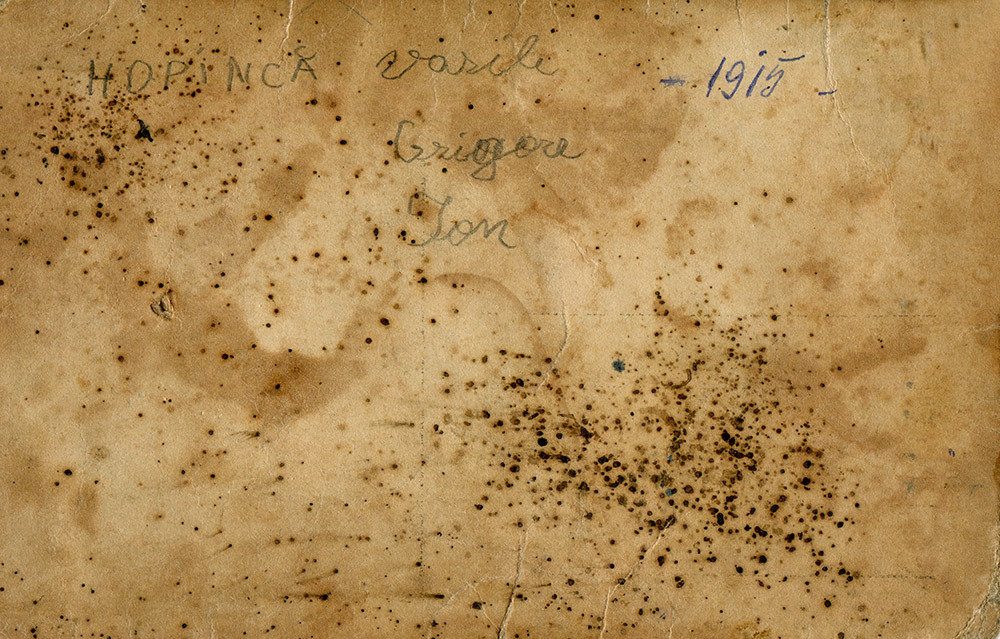 HOPINCĂ Vasile - 1915 -
Grigore
Ion